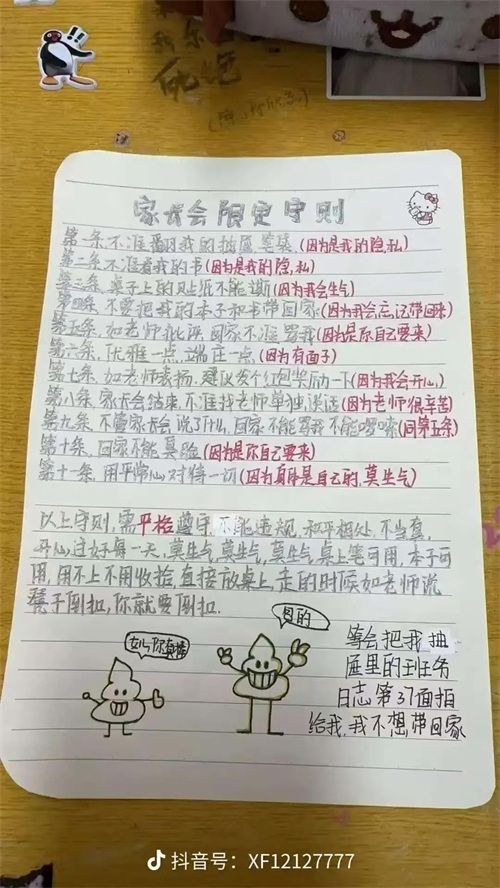 我
死
家长会限定守则
第一条.不准翻我的抽屉,笔袋.(因为是我的隐,私)
第二条.不准看我的书(因为是我的隐,私)
第三条.桌子上的贴纸不能撕(因为我会生气)
第四条.不要把我的本子和书带回家(因为我会忘,记带回来)
第五条.如老师批评,回家不准骂我(因为是你自己要来)
第六条.优雅一点,端庄一点,(因为有面子)
第七条.如老师表扬.建议发个红包奖励一下(因为我会开心)
第八条.家长会结束.不准找老师单独谈话(因为老师很辛苦)
第九条.不管家长会说了什么,回家不能骂我不能啰嗦(同第五条)
第十条,回家不能冥脸(因为是你自己要来)
第十一条.用平常心对待一切(因为身体是自己的,莫生气)
以上守则,需严格遵守,不能违规,和平相处,不当真,
开心过好每一天,莫生气,莫生气,莫生气,桌上笔可用,本子可
用,用不上不用收捡,直接放桌上,走的时候如老师说
凳子倒扣,你就要倒扣.
女儿你真棒
真的
等会把我抽
屉里的班任务
日志第37面拍
给我,我不想,带回家
抖音号：XF12127777